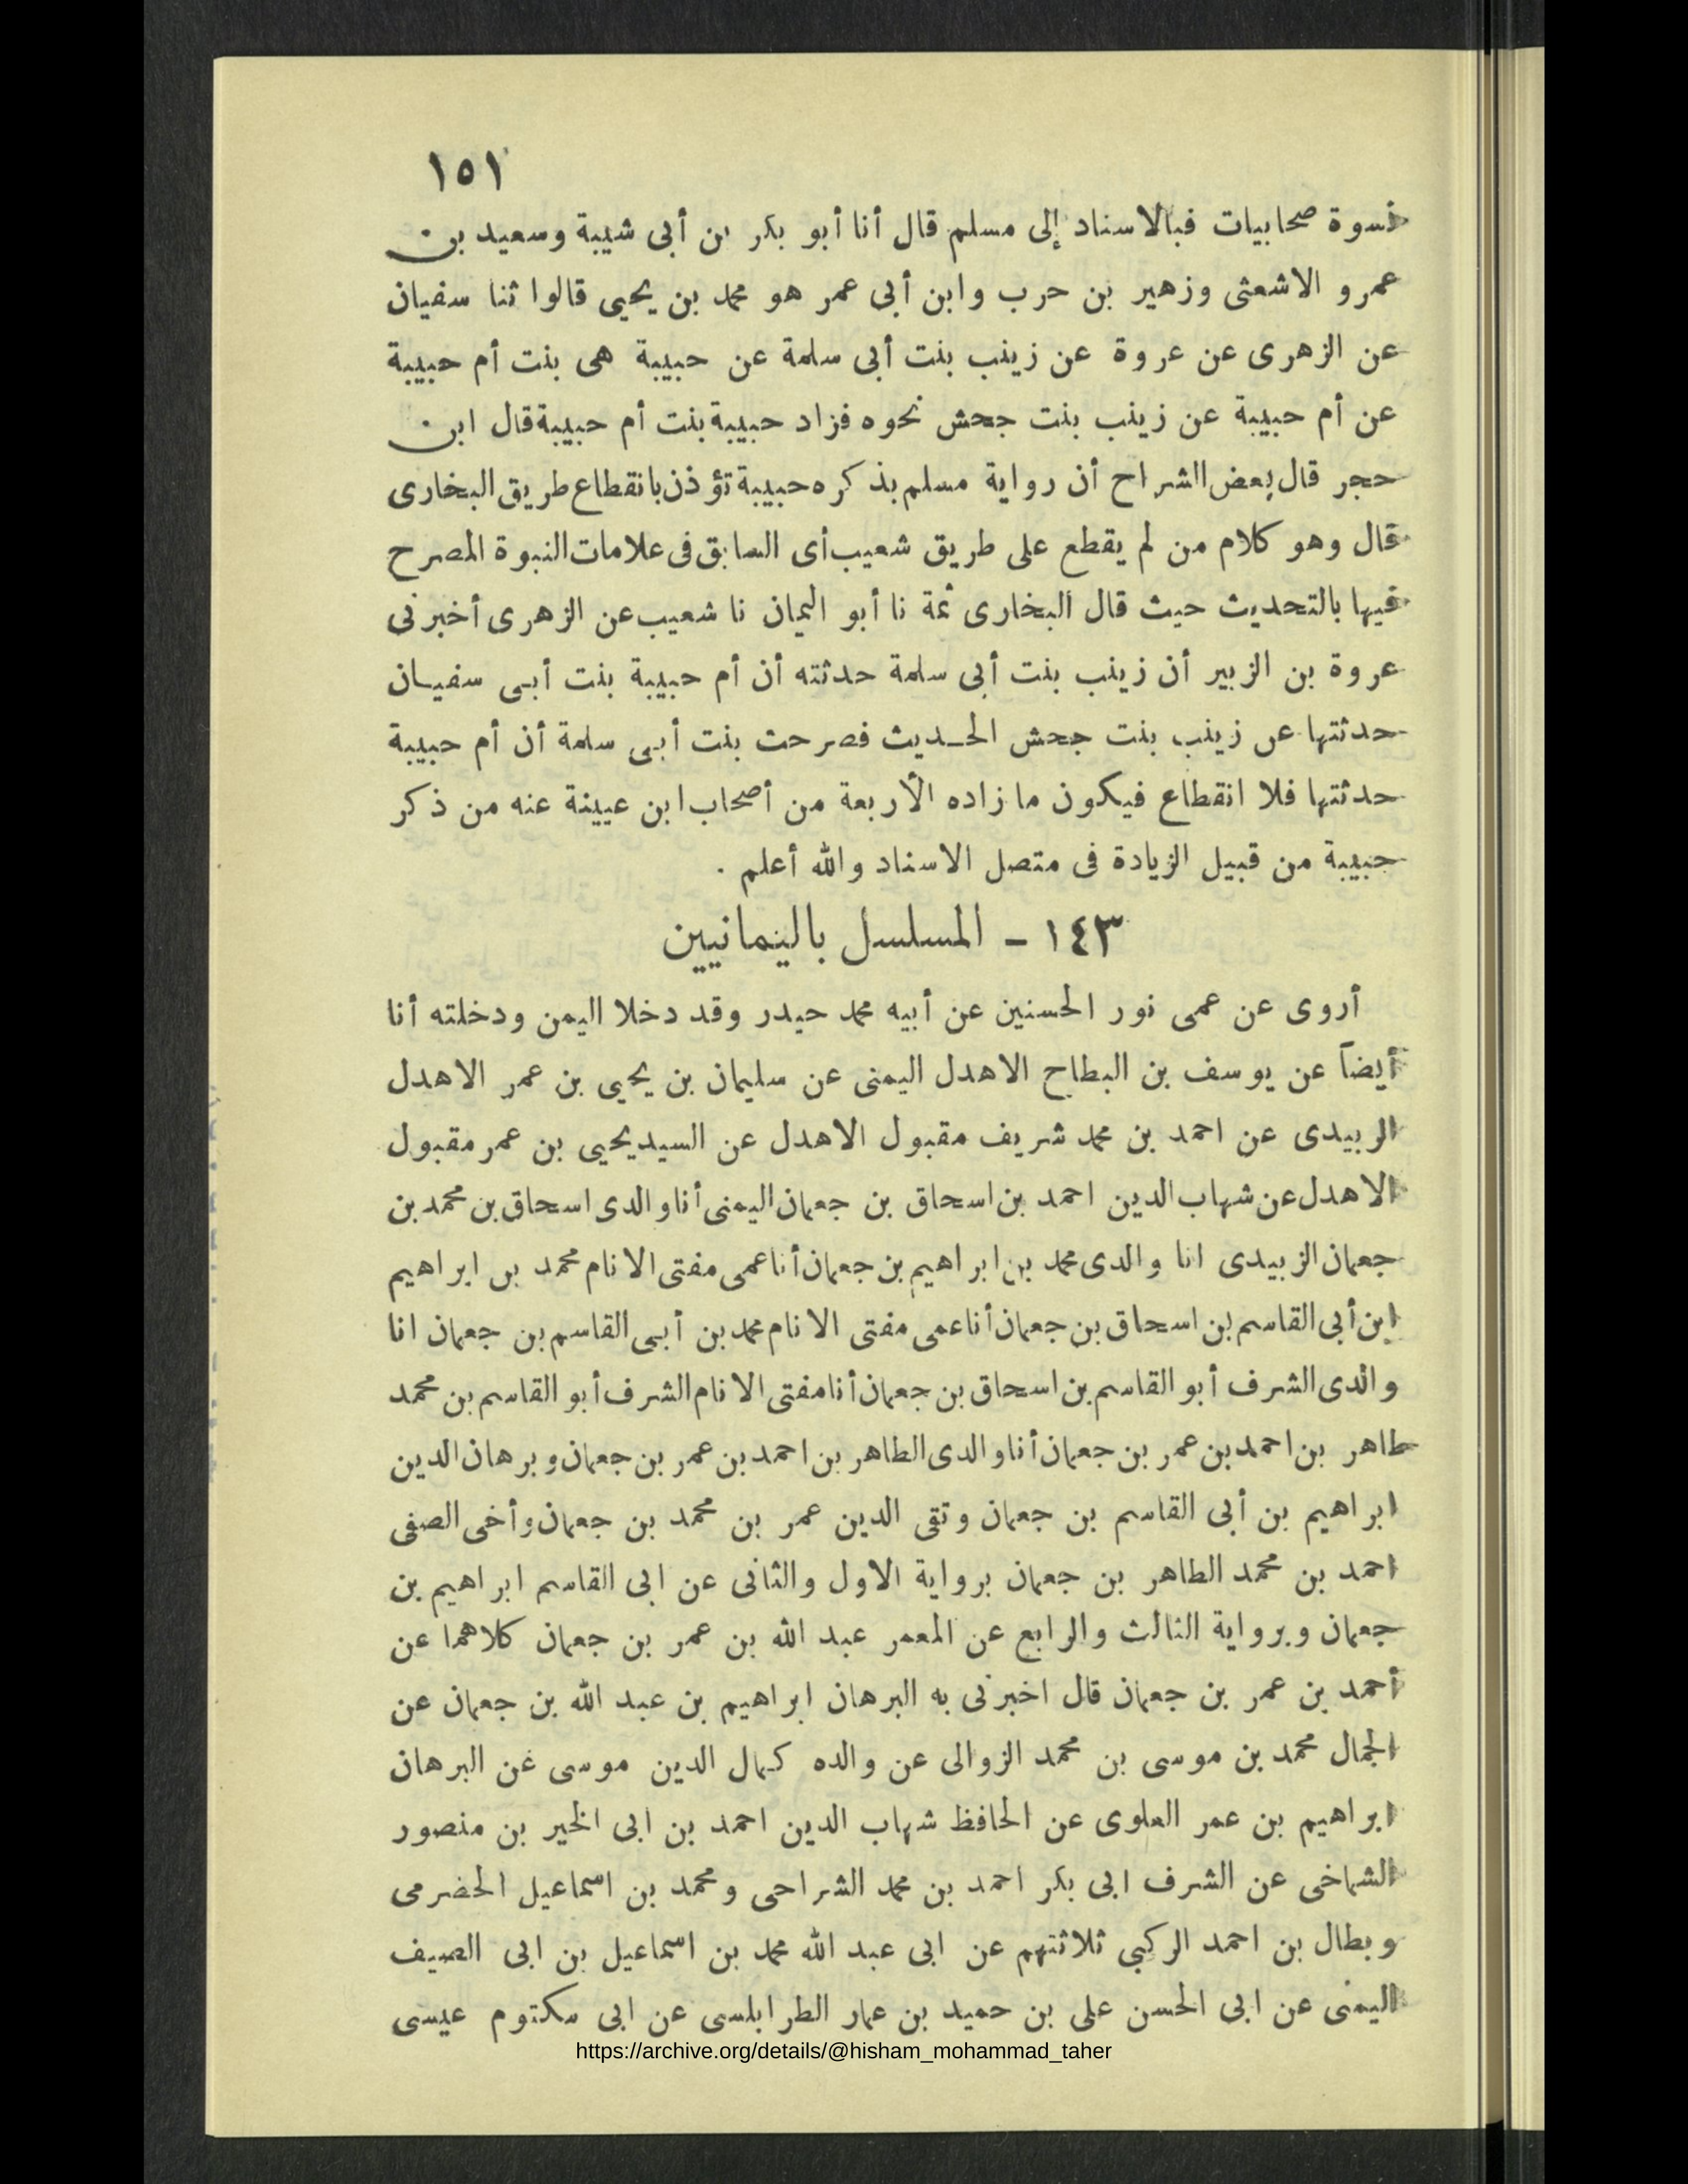 ١٥١
نسوة صحابيات فبالاسناد إلى مسلم قال أنا أبو بكر بن أبى شيبة وسعيد بن
عمرو الاشعثى وزهير بن حرب وابن أبى عمر هو محمد بن يحيى قالوا ثنا سفيان
عن الزهرى عن عروة عن زينب بنت أبى سلمة عن حبيبة هى بنت أم حبيبة
عن أم حبيبة عن زينب بنت جحش نحوه فزاد حبيبة بنت أم حبيبة قال ابن
حجر قال بعض الشراح أن رواية مسلم بذكره حبيبة تؤذن بانقطاع طريق البخارى
قال وهو كلام من لم يقطع على طريق شعيب أى السابق فى علامات النبوة المصرح
فيها بالتحديث حيث قال البخارى ثمة نا أبو اليمان نا شعيب عن الزهرى أخبرنى
عروة بن الزبير أن زينب بنت أبى سلمة حدثته أن أم حبيبة بنت أبى سفيان
حدثتها عن زينب بنت جحش الحديث فصرحت بنت أبى سلمة أن أم حبيبة
حدثتها فلا انقطاع فيكون ما زاده الأربعة من أصحاب ابن عيينة عنه من ذكر
حبيبة من قبيل الزيادة فى متصل الاسناد والله أعلم .
١٤٣ - المسلسل باليمانيين
أروى عن عمى نور الحسنين عن أبيه محمد حيدر وقد دخلا اليمن ودخلته أنا
أيضاً عن يوسف بن البطاح الاهدل اليمنى عن سليمان بن يحيى بن عمر الاهدل
الربيدى عن احمد بن محمد شريف مقبول الاهدل عن السيد يحيى بن عمر مقبول
الاهدل عن شهاب الدين احمد بن اسحاق بن جعمان اليمنى أنا والدى اسحاق بن محمد بن
جعمان الزبيدى انا والدى محمد بن ابراهيم بن جعمان أنا عمى مفتى الانام محمد بن ابراهيم
ابن أبى القاسم بن اسحاق بن جعمان أنا عمى مفتى الانام محمد بن أبى القاسم بن جعمان انا
والدى الشرف أبو القاسم بن اسحاق بن جعمان أنا مفتى الانام الشرف أبو القاسم بن محمد
طاهر بن احمد بن عمر بن جعمان أنا والدى الطاهر بن احمد بن عمر بن جعمان وبرهان الدين
ابراهيم بن أبى القاسم بن جعمان وتقى الدين عمر بن محمد بن جعمان وأخى الصفى
احمد بن محمد الطاهر بن جعمان برواية الاول والثانى عن ابى القاسم ابراهيم بن
جعمان وبرواية الثالث والرابع عن المعمر عبد الله بن عمر بن جعمان كلاهما عن
أحمد بن عمر بن جعمان قال اخبرنى به البرهان ابراهيم بن عبد الله بن جعمان عن
الجمال محمد بن موسى بن محمد الزوالى عن والده كمال الدين موسى غن البرهان
ابراهيم بن عمر العلوى عن الحافظ شهاب الدين احمد بن ابى الخير بن منصور
الشماخى عن الشرف ابى بكر احمد بن محمد الشراحى ومحمد بن اسماعيل الحضرمى
وبطال بن احمد الركبي ثلاثتهم عن ابى عبد الله محمد بن اسماعيل بن ابى الصيف
اليمنى عن ابى الحسن على بن حميد بن عمار الطرابلسى عن ابى مكتوم عيسى
https://archive.org/details/@hisham_mohammad_taher